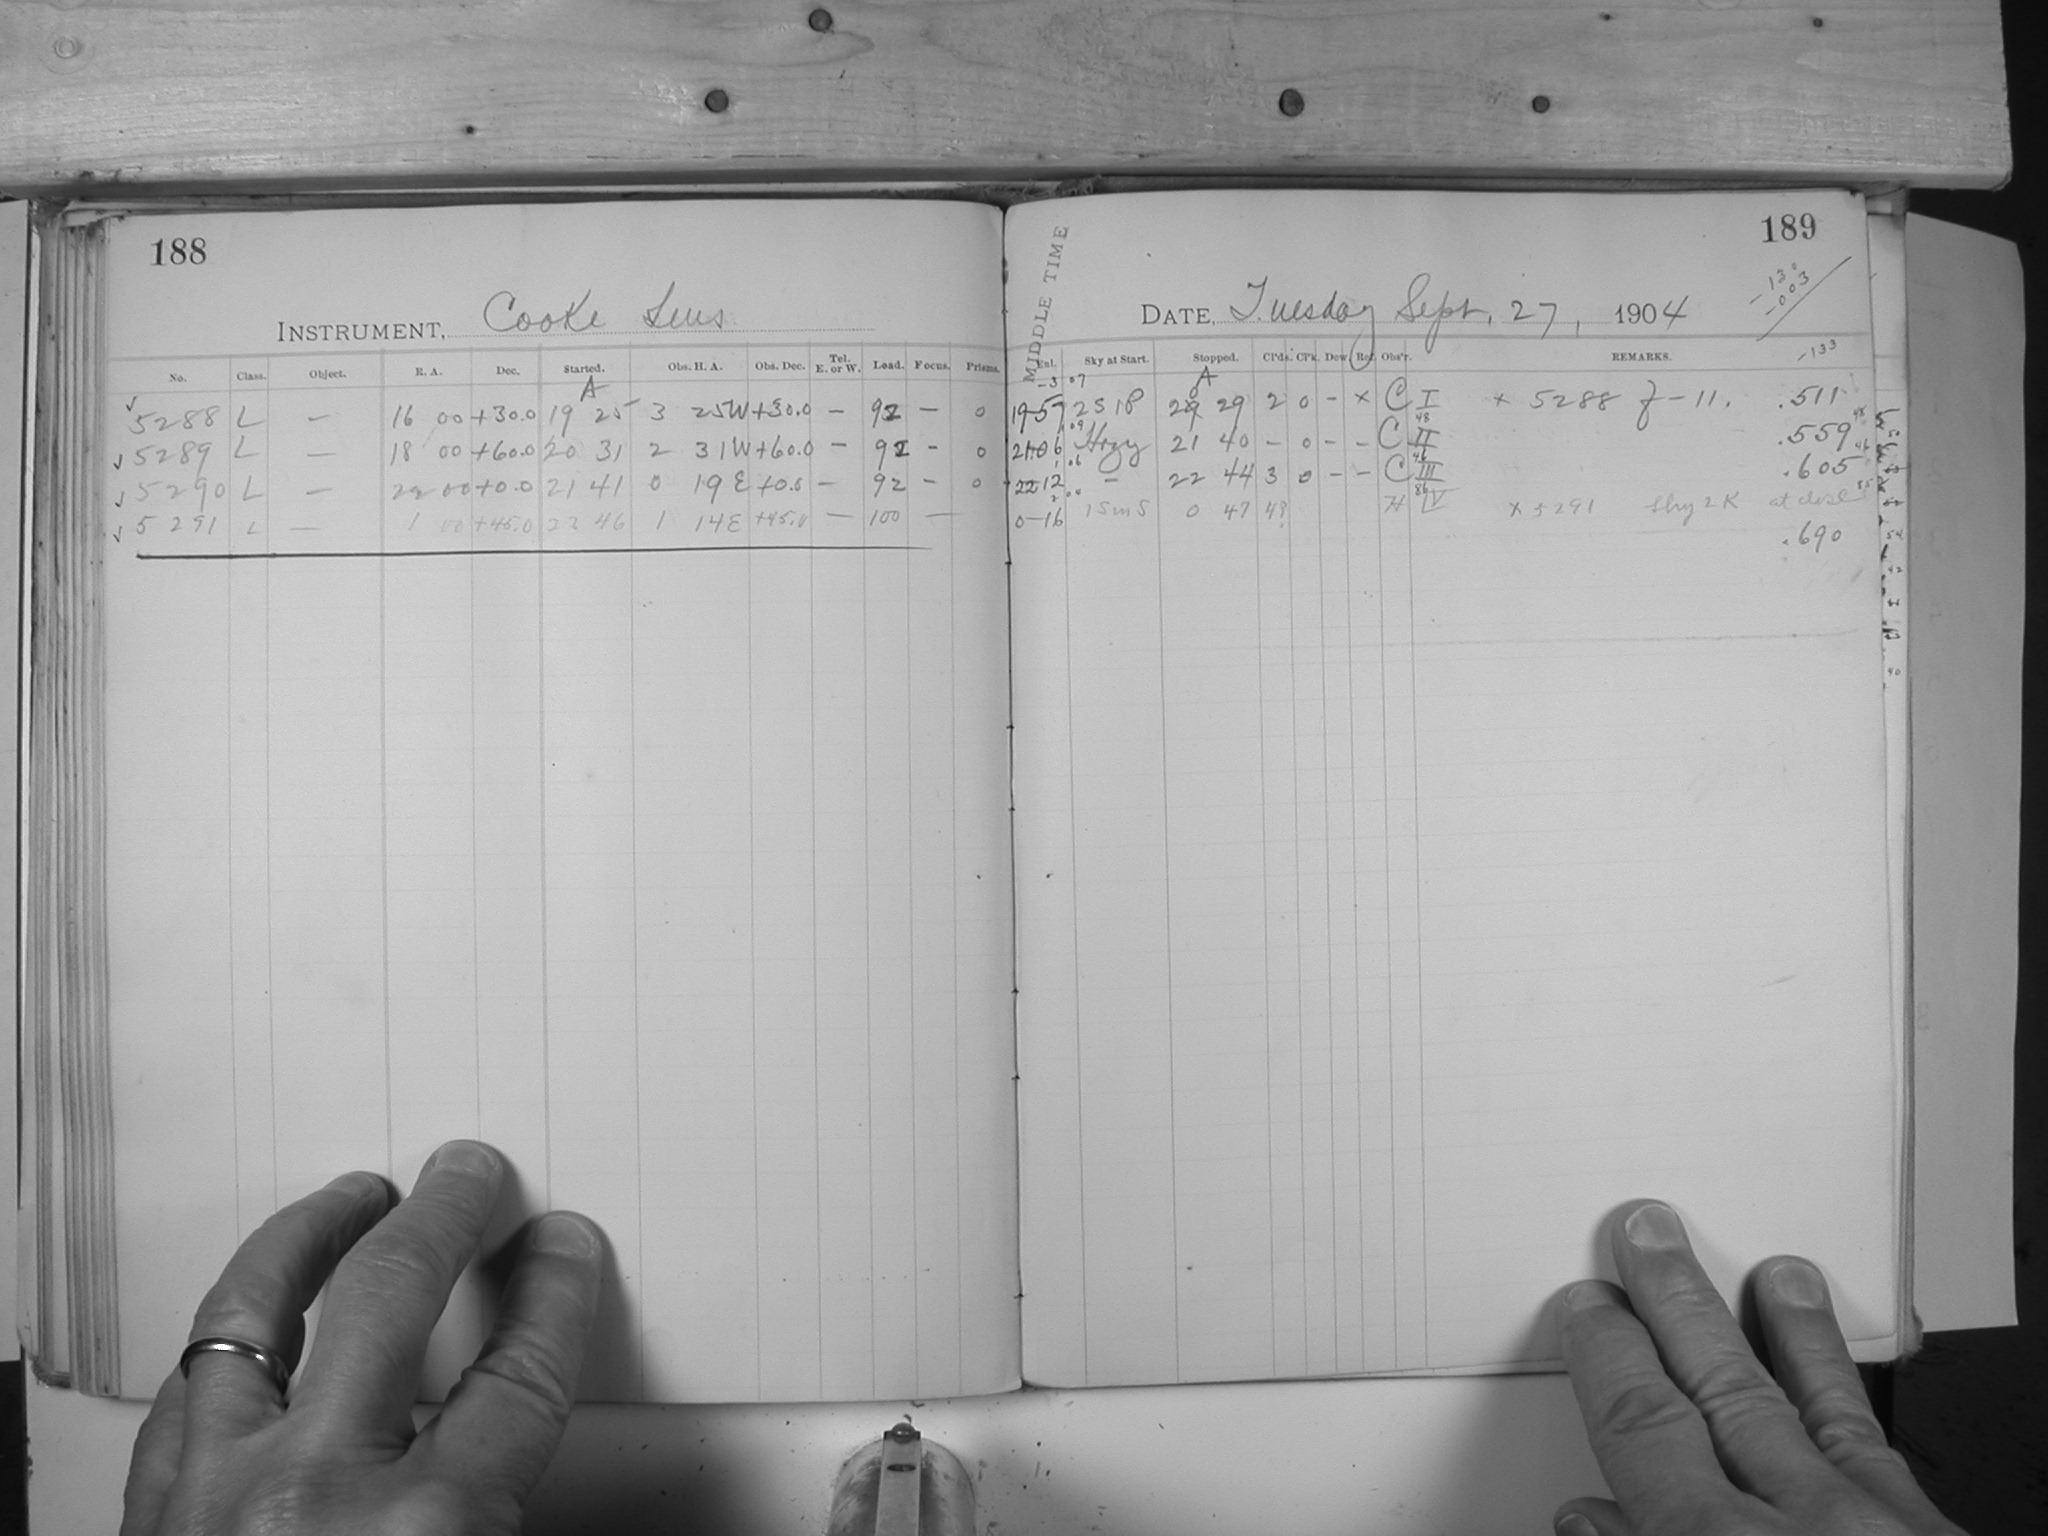 188
INSTRUMENT, Cooke Lens
No. Class. Object. R. A. Dec. Started. Obs. H. A. Obs. Dec. Tel. E. or W. Lead. Focus. Prisms.
A
5288 L — 16 00 +30.0 19 25 3 25W +30.0 — 92 — 0
5289 L — 18 00 +60.0 20 31 2 31W +60.0 — 92 - 0
5290 L — 22 00 +0.0 21 41 0 19E +0.0 — 92 - 0
5291 L — 1 00 +45.0 23 46 1 14E +45.0 — 100 —
189
MIDDLE TIME
DATE, Tuesday Sept. 27, 1904
-.130
-.003
-133
Enl. Sky at Start. Stopped. Cl'ds. Cl'k. Dew. Rec. Obs'r. REMARKS.
A
19-57 2S1P 20 29 2 0 - × C I × 5288 J-11. .511
21-06 Hazy 21 40 - 0 - - C II .559
22-12 - 22 44 3 0 - - C III .605
0-16 1SmS 0 47 4? H IV × 5291 Sky 2K at close
.690